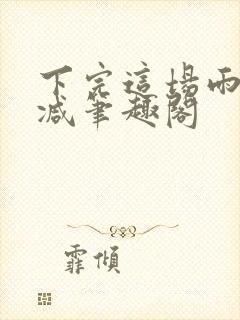 下完這場雨
減筆趣閣
霏傾